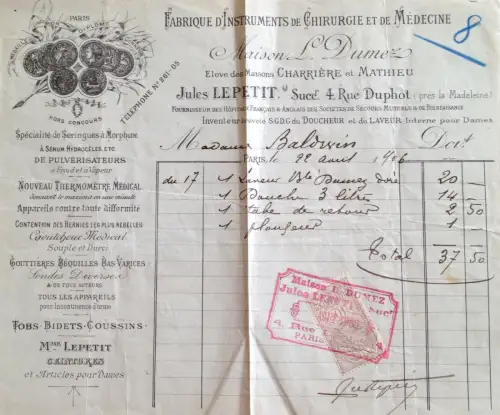 PARIS
HORS CONCOURS
TÉLÉPHONE Nº 261-05
FABRIQUE D'INSTRUMENTS DE CHIRURGIE ET DE MÉDECINE
8
Maison L. Dumez
Elève des Maisons CHARRIÈRE et MATHIEU
Jules LEPETIT, Succr 4, Rue Duphot (près la Madeleine)
FOURNISSEUR DES HÔPITAUX FRANÇAIS & ANGLAIS DES SOCIÉTÉS DE SECOURS MUTUELS & DE BIENFAISANCE
Inventeur breveté S.G.D.G. du DOUCHEUR et du LAVEUR Interne pour Dames
Spécialité de Seringues à Morphine
A SÉRUM HYDROCÈLES, ETC.
DE PULVÉRISATEURS
à Froid et à Vapeur
NOUVEAU THERMOMÈTRE MÉDICAL
donnant le maxima en une minute
Appareils contre toute difformité
CONTENTION DES HERNIES LES PLUS REBELLES
Caoutchouc Médical
Souple et Durci
GOUTTIÈRES BÉQUILLES BAS-VARICES
Sondes Diverses
& DE TOUS AUTEURS
TOUS LES APPAREILS
TUBS-BIDETS-COUSSINS
MME LEPETIT
CEINTURES
et Articles pour Dames
Madame Baldwin Doit
PARIS, 22 août 1906
du 17 1 Laveur Dumez doré 20 —
1 Douche 3 litres 14 —
1 tube de rehour 2 50
1 plongeur 1
Total 37 50
Maison L. DUMEZ
Jules LEPETIT Succr
4, Rue
PARIS